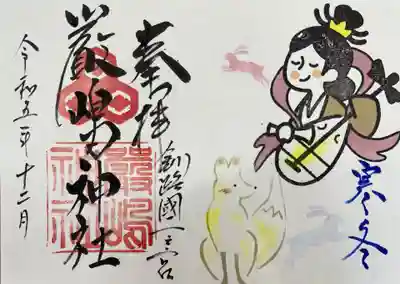 奉拝
釧路國一之宮
厳島神社
令和五年十二月
寒冬